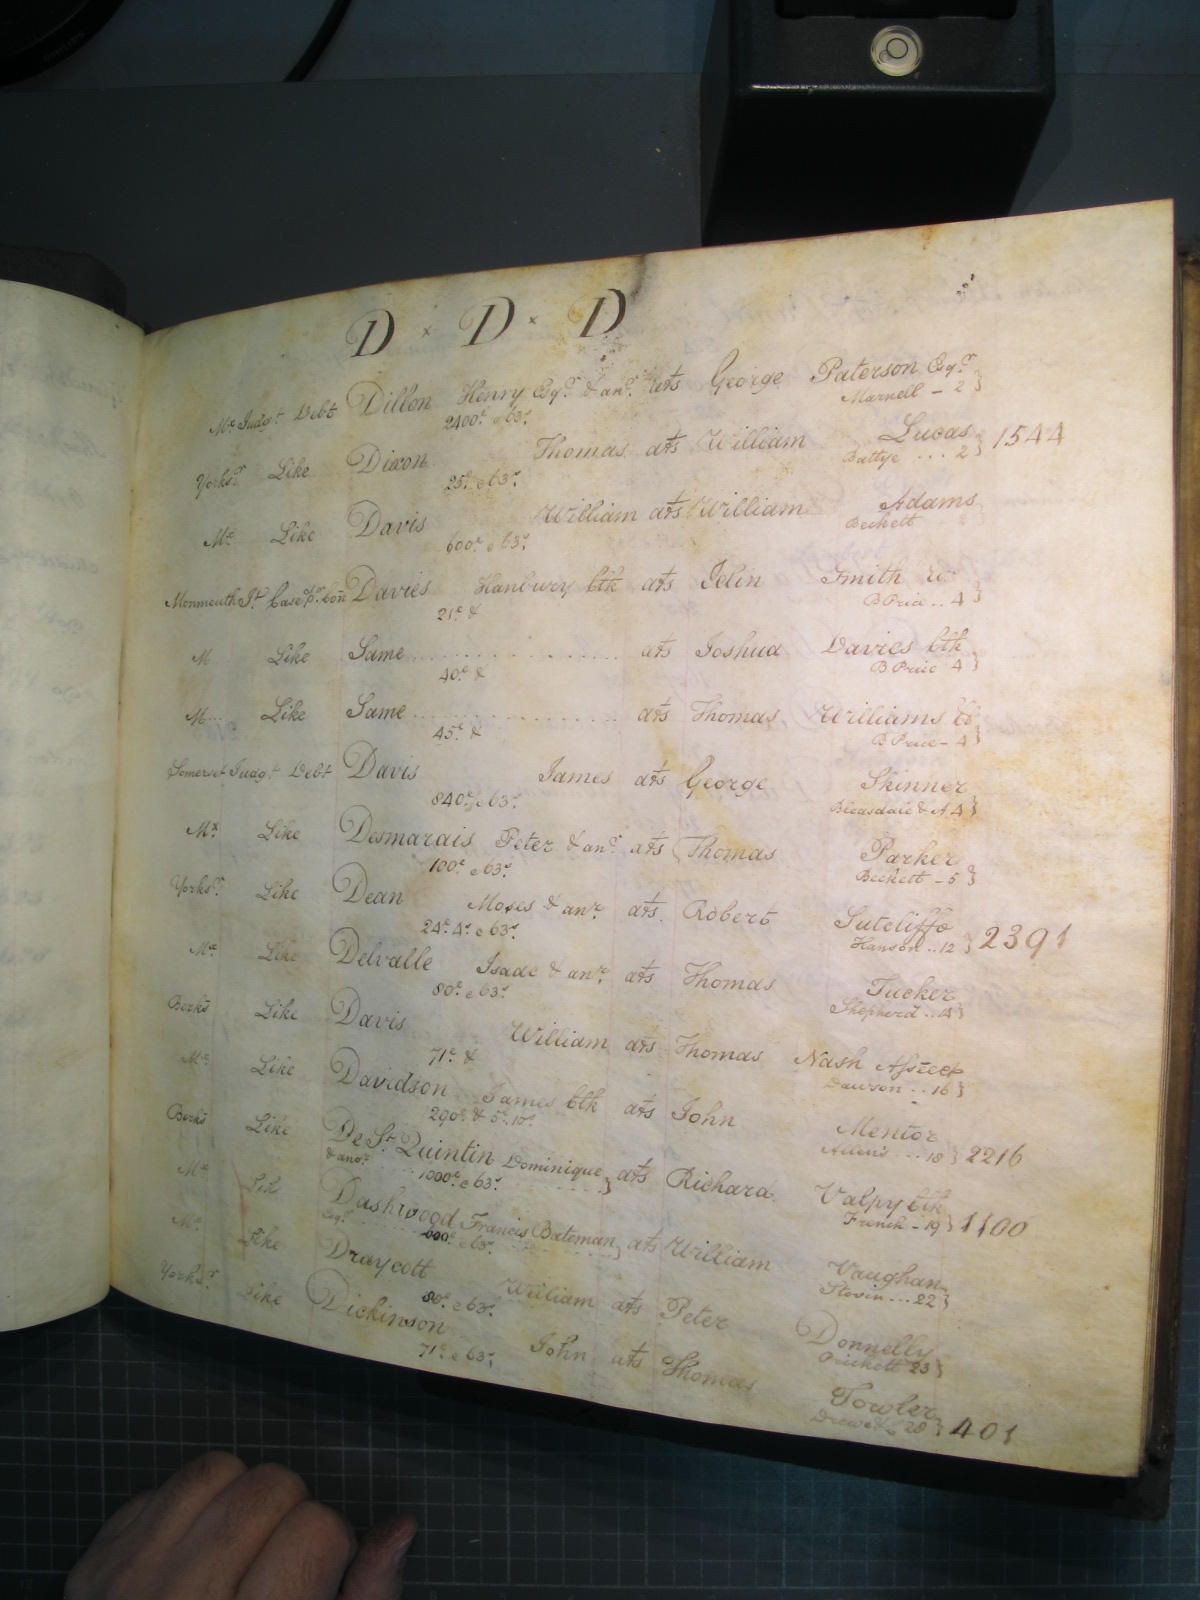 D × D × D
Mx Judgt Debt Dillon Henry Esqr & anr ats George Paterson Esqr
2400£ & 63s Marnell - 2
Yorksr Like Dixon Thomas ats William Lucas 1544
25£ & 63s Battye ... 2
Mx Like Davis William ats William Adams
600£ & 63s Beckett
Monmouth Jt Case Davies Hanbury Clk ats John Smith
21£ & B Price .. 4
M Like Same ats Joshua Davies Clk
40£ & B Price 4
M... Like Same ats Thomas Williams
45£ & B Price - 4
Somerset Judgt Debt Davis James ats George Skinner
840£ & 63s Bleasdale & A 4
Mx Like Desmarais Peter & anr ats Thomas Parker
100£ & 63s Beckett - 5
Yorksr Like Dean Moses & anr ats Robert Sutcliffe
24£ 4s & 63s Hanson .. 12 2391
Mx Like Delvalle Isaac & anr ats Thomas Tucker
80£ & 63s Shepherd .. 15
Berks Like Davis William ats Thomas Nash
71£ & Dawson .. 16
Mx Like Davidson James Clk ats John Mentor
290£ & 5£ 10s Allens ... 18 2216
Berks Like De St Quintin Dominique ats Richard Valpy Clk
& anor 1000£ & 63s French - 19 1100
Mx Like Dashwood Francis Bateman ats William Vaughan
Esqr 600£ & 63s Slovin ... 22
Mx Like Draycott William ats Peter Donnelly
80£ & 63s Prickett 23
Yorksr Like Dickinson John ats Thomas Fowler
71£ & 63s 28 401